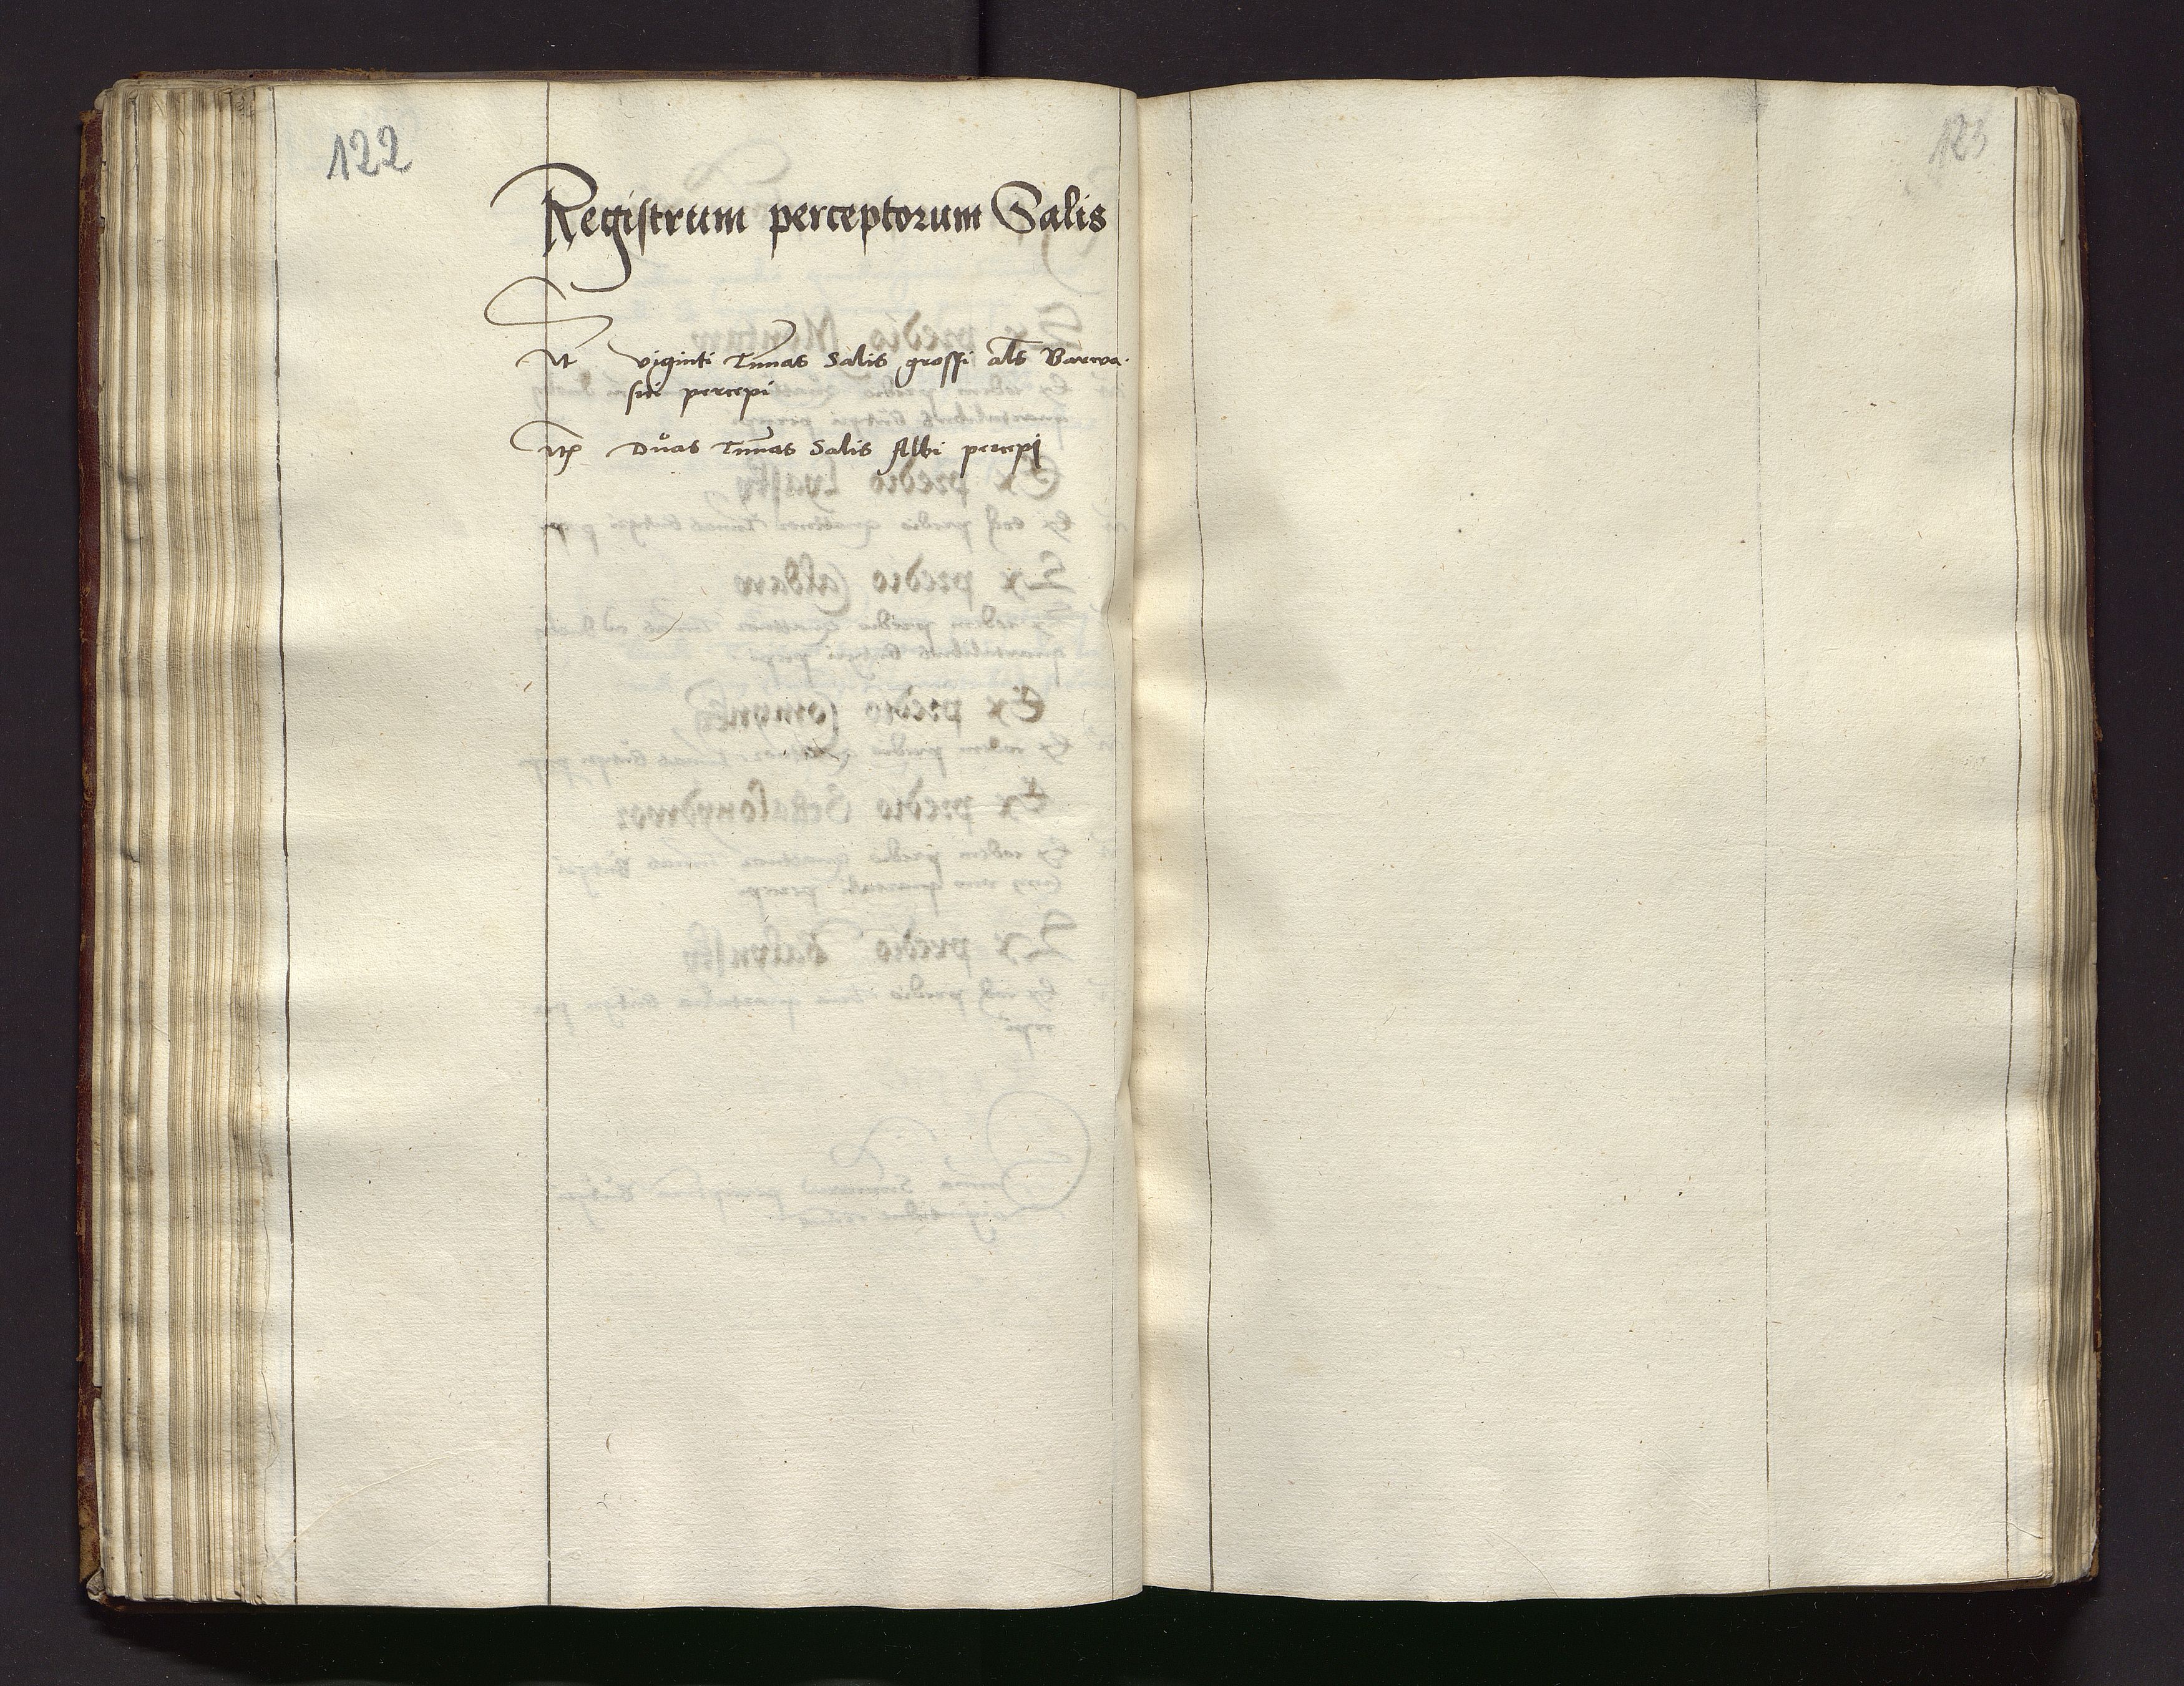 122
Registrum perceptorum Salis
It viginti Tunnas Salis grossi als Barwa
sci percepi
Itm Duas Tunnas Salis Albi percepi
123